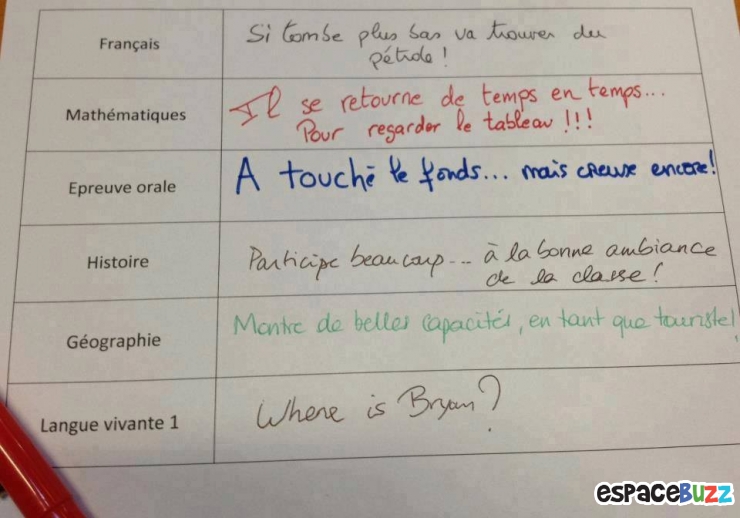 Français
Si tombe plus bas va trouver du
pétrole !
Mathématiques
Il se retourne de temps en temps...
Pour regarder le tableau !!!
Epreuve orale
A touché le fonds... mais creuse encore!
Histoire
Participe beaucoup... à la bonne ambiance
de la classe !
Géographie
Montre de belles capacités, en tant que touriste!
Langue vivante 1
Where is Bryan?
espaceBuzz